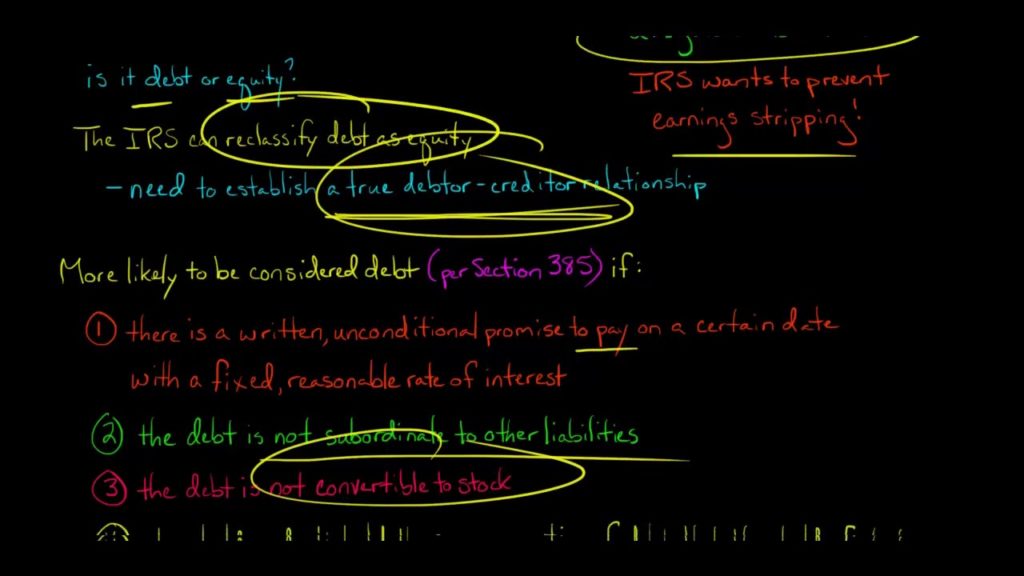 is it debt or equity?
The IRS can reclassify debt as equity
- need to establish a true debtor-creditor relationship
IRS wants to prevent
earnings stripping!
More likely to be considered debt (per Section 385) if:
① there is a written, unconditional promise to pay on a certain date
with a fixed, reasonable rate of interest
② the debt is not subordinate to other liabilities
③ the debt is not convertible to stock